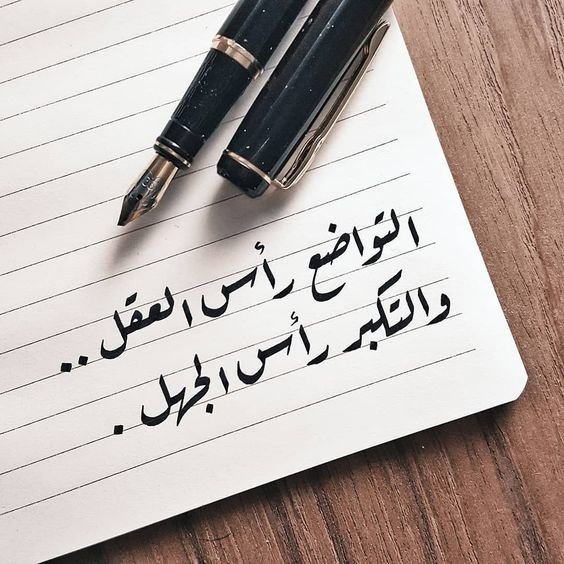 التواضع رأس العقل ..
والتكبر رأس الجهل .